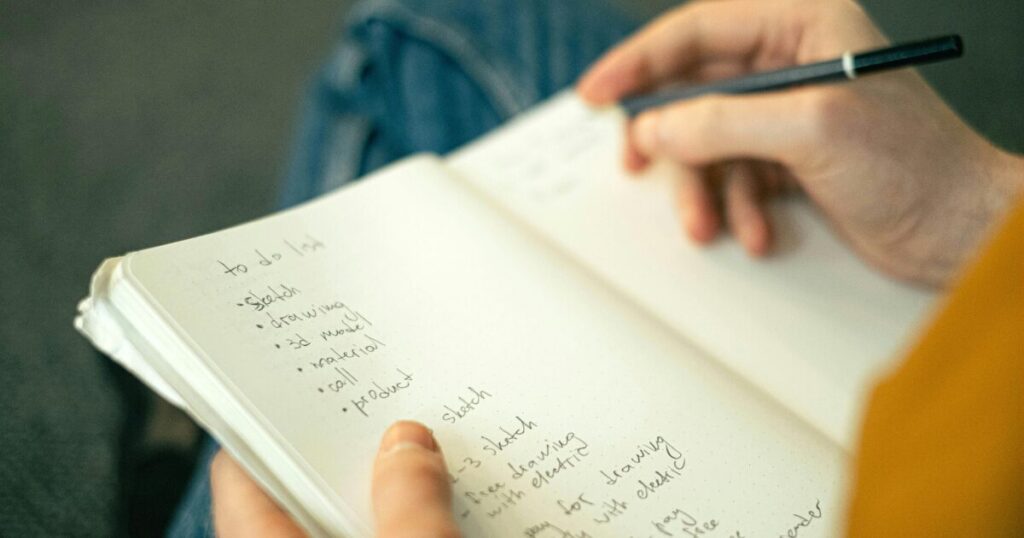 to do list
• sketch
• drawing
• 3d model
• material
• call
• product
sketch
-3 sketch
- free drawing
with electric
pay for drawing
with electric
pay
free